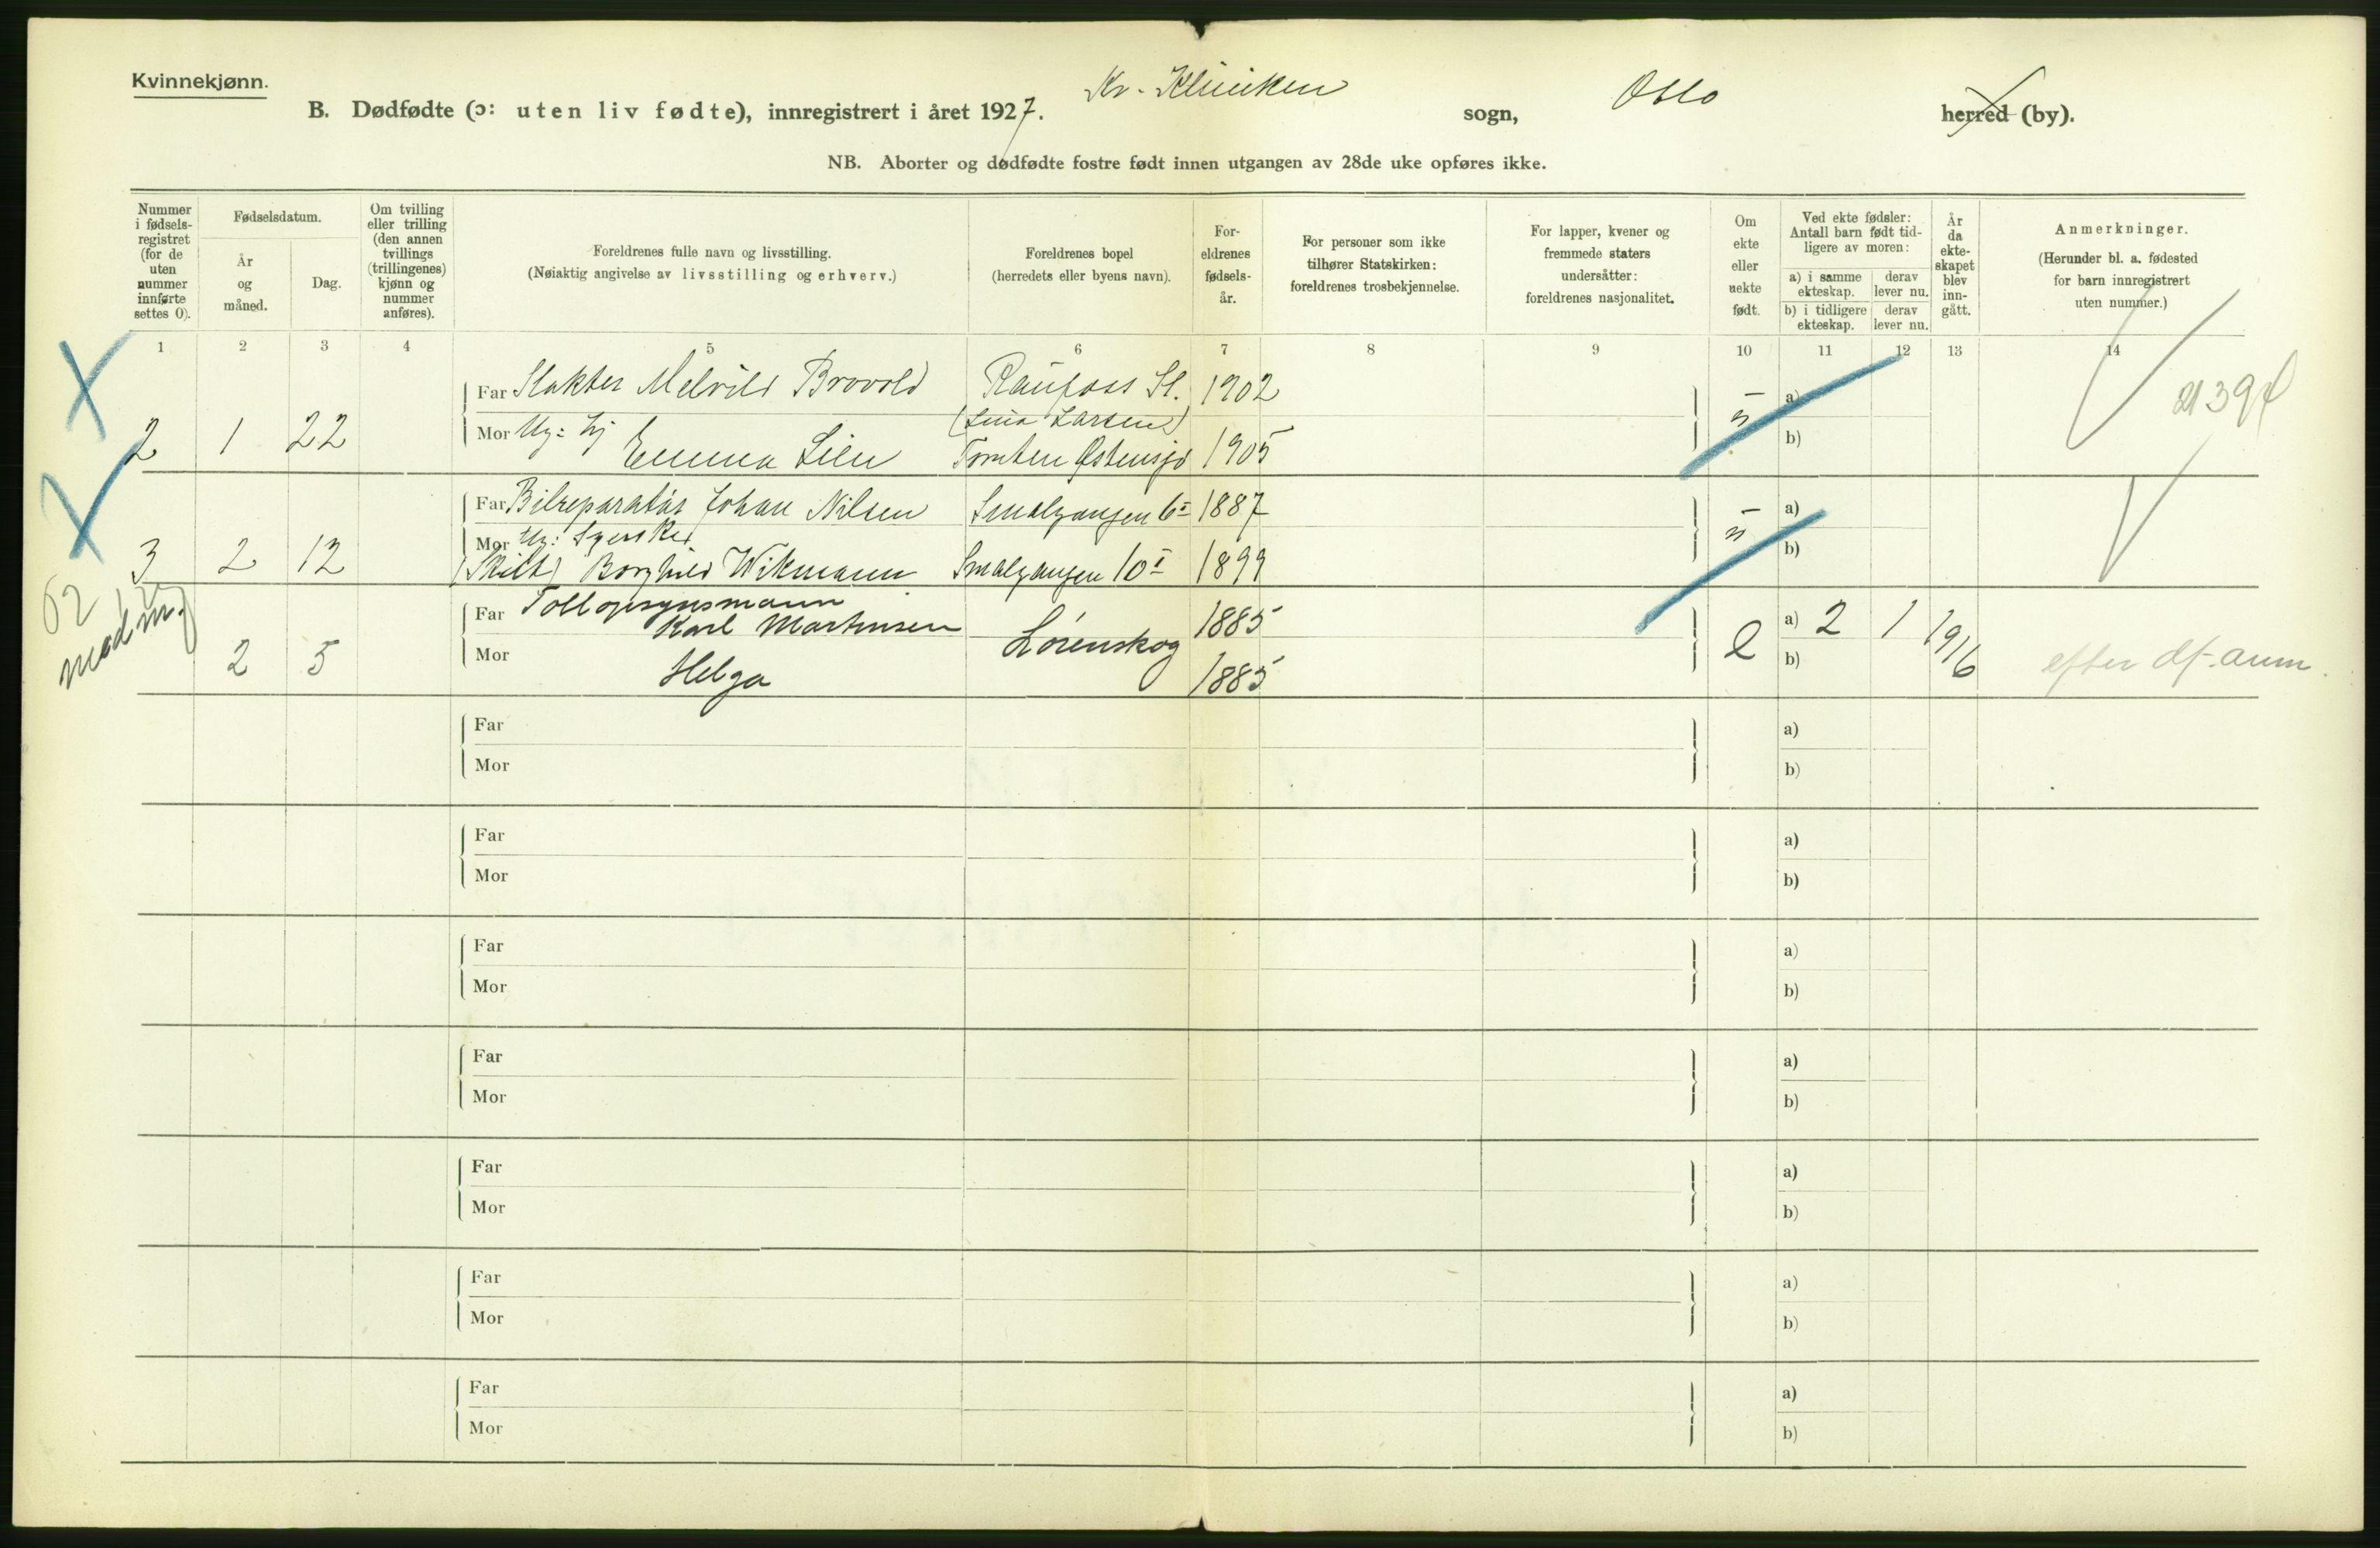 Kvinnekjønn.
B. Dødfødte (ɔ: uten liv fødte), innregistrert i året 1927. Kv. Klinikken sogn, Oslo herred (by).
NB. Aborter og dødfødte fostre født innen utgangen av 28de uke opføres ikke.
Nummer i fødsels-registret (for de uten nummer innførte settes 0).
Fødselsdatum.
År og måned.
Dag.
Om tvilling eller trilling (den annen tvillings (trillingenes) kjønn og nummer anføres).
Foreldrenes fulle navn og livsstilling.
(Nøiaktig angivelse av livsstilling og erhverv.)
Foreldrenes bopel
(herredets eller byens navn).
For-eldrenes fødsels-år.
For personer som ikke tilhører Statskirken: foreldrenes trosbekjennelse.
For lapper, kvener og fremmede staters undersåtter: foreldrenes nasjonalitet.
Om ekte eller uekte født.
Ved ekte fødsler: Antall barn født tid-ligere av moren:
a) i samme ekteskap.
derav lever nu.
b) i tidligere ekteskap.
derav lever nu.
År da ekte-skapet blev inn-gått.
Anmerkninger.
(Herunder bl. a. fødested for barn innregistrert uten nummer.)
1 2 3 4 5 6 7 8 9 10 11 12 13 14
Far Slakter Melvild Brovold Raufoss St. 1902 a)
(Lina Larsen)
2 1 22 Mor Ug: hj Emma Lien Tomten Østensjø 1905 b)
Far Bilreparatør Johan Nilsen Smalgangen 6 1887 a)
3 2 12 Mor Ug: Syerske (Skilt) Borghild Wikmann Smalgangen 10 I 1899 b)
62
Far Tollopsynsmann Karl Martinsen Lørenskog 1885 e a) 2 1 1916
2 5 Mor Helga 1885 b) efter df-anm.
Far a)
Mor b)
Far a)
Mor b)
Far a)
Mor b)
Far a)
Mor b)
Far a)
Mor b)
Far a)
Mor b)
Far a)
Mor b)